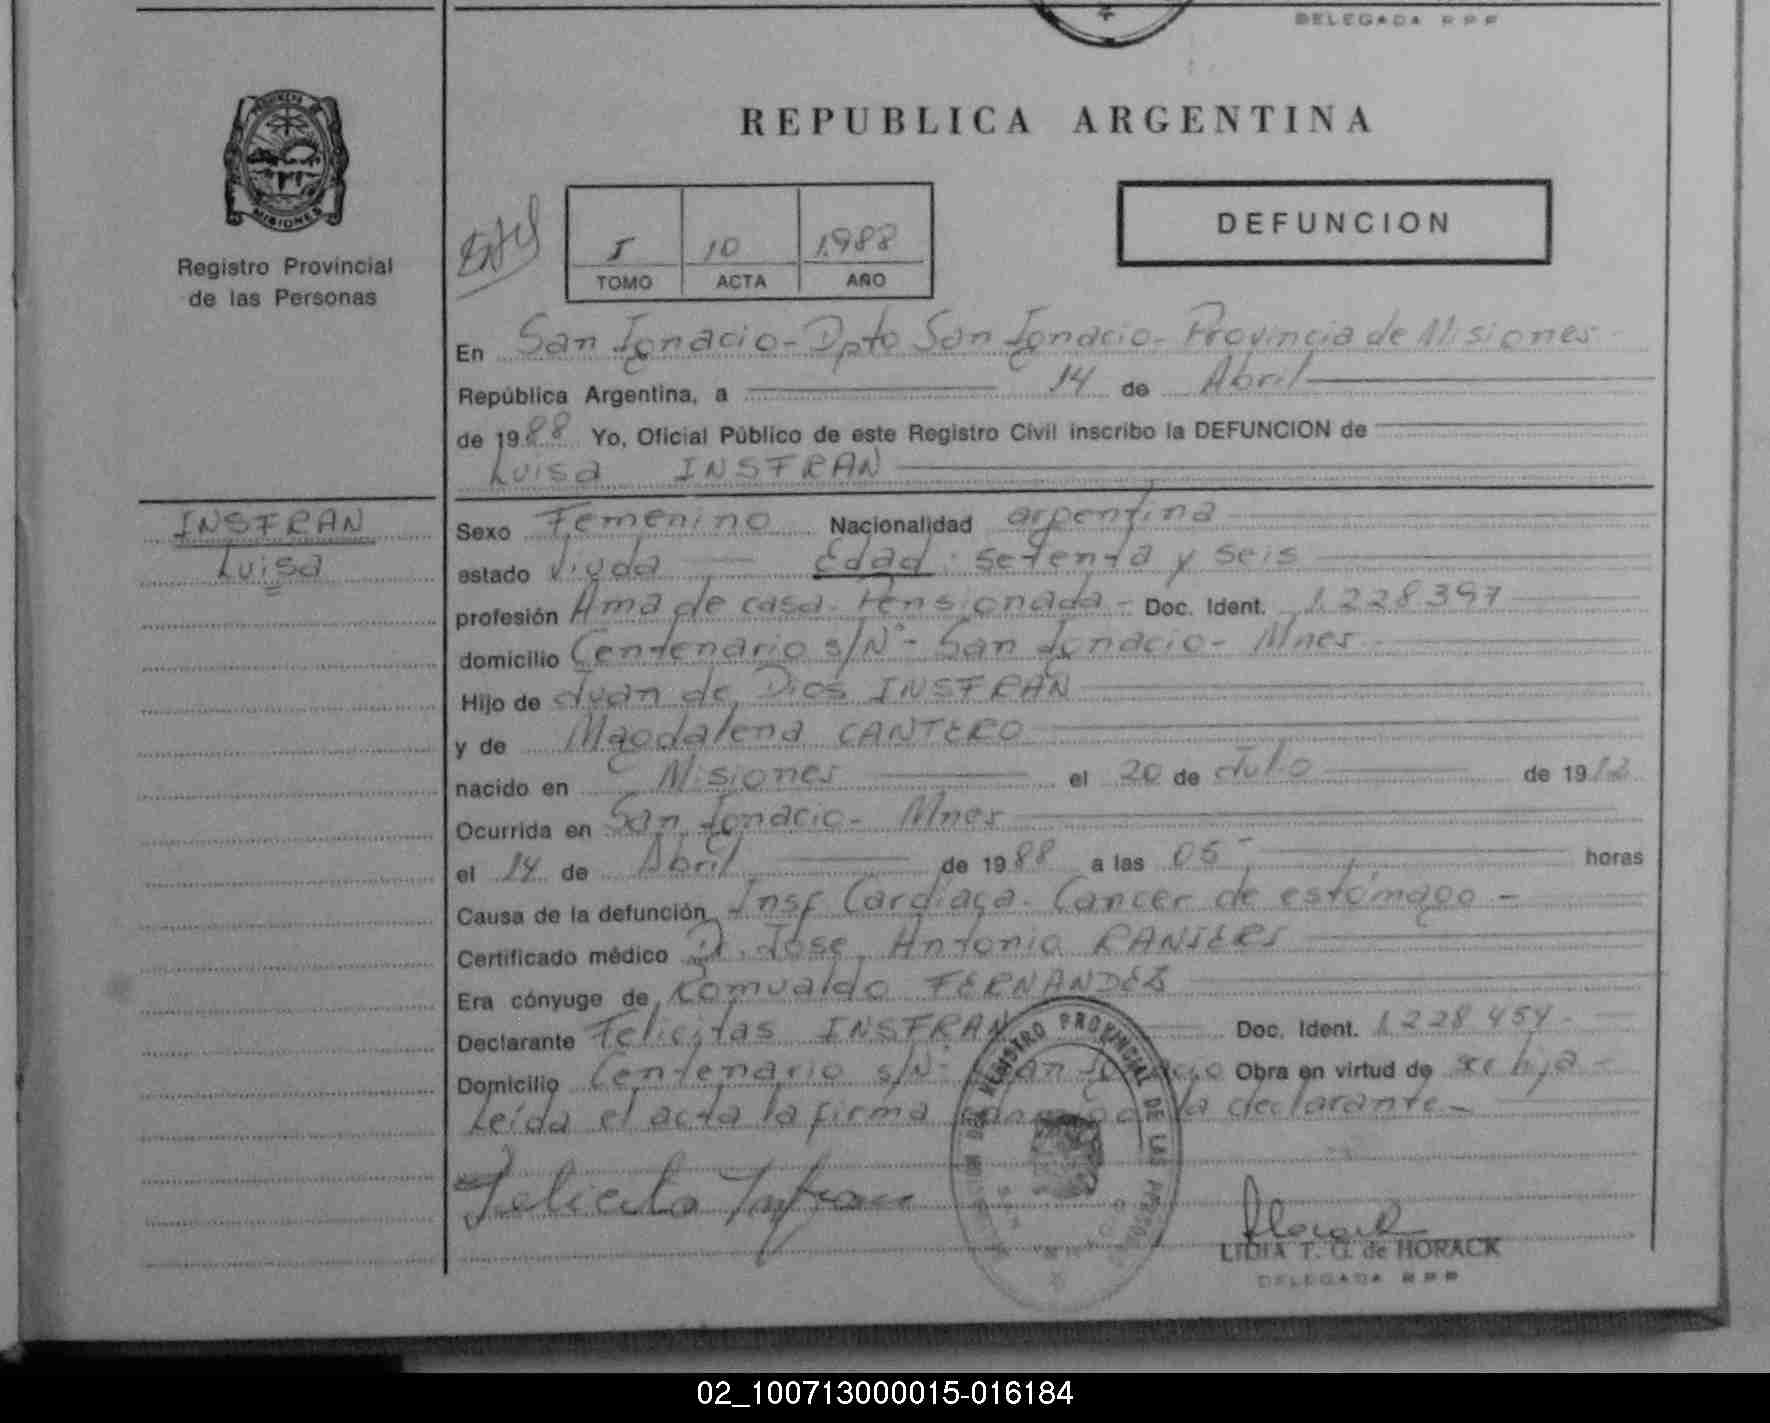 DELEGADA R P P
REPUBLICA ARGENTINA
PROVINCIA DE
MISIONES
Registro Provincial
de las Personas
I 10 1988
TOMO ACTA AÑO
DEFUNCION
En San Ignacio - Dpto San Ignacio - Provincia de Misiones
República Argentina, a 14 de Abril
de 1988 Yo, Oficial Público de este Registro Civil inscribo la DEFUNCION de
Luisa INSFRAN
INSFRAN
Luisa
Sexo Femenino Nacionalidad argentina
estado Viuda Edad: setenta y seis
profesión Ama de casa. Pensionada - Doc. Ident. 1.228.397
domicilio Centenario s/Nº - San Ignacio - Mnes
Hijo de Juan de Dios INSFRAN
y de Magdalena CANTERO
nacido en Misiones el 20 de Julio de 1912
Ocurrida en San Ignacio - Mnes
el 14 de Abril de 1988 a las 05 horas
Causa de la defunción Insf Cardiaca. Cancer de estómago -
Certificado médico Dr. Jose Antonio RANIERI
Era cónyuge de Romualdo FERNANDEZ
Declarante Felicitas INSFRAN Doc. Ident. 1.228.454 -
Domicilio Centenario s/Nº - San Ignacio Obra en virtud de ser hija -
Leída el acta la firma conmigo la declarante -
REGISTRO PROVINCIAL DE LAS PERSONAS
Felicita Insfran
LIDIA T. G. de HORACK
DELEGADA R P P
02_100713000015-016184